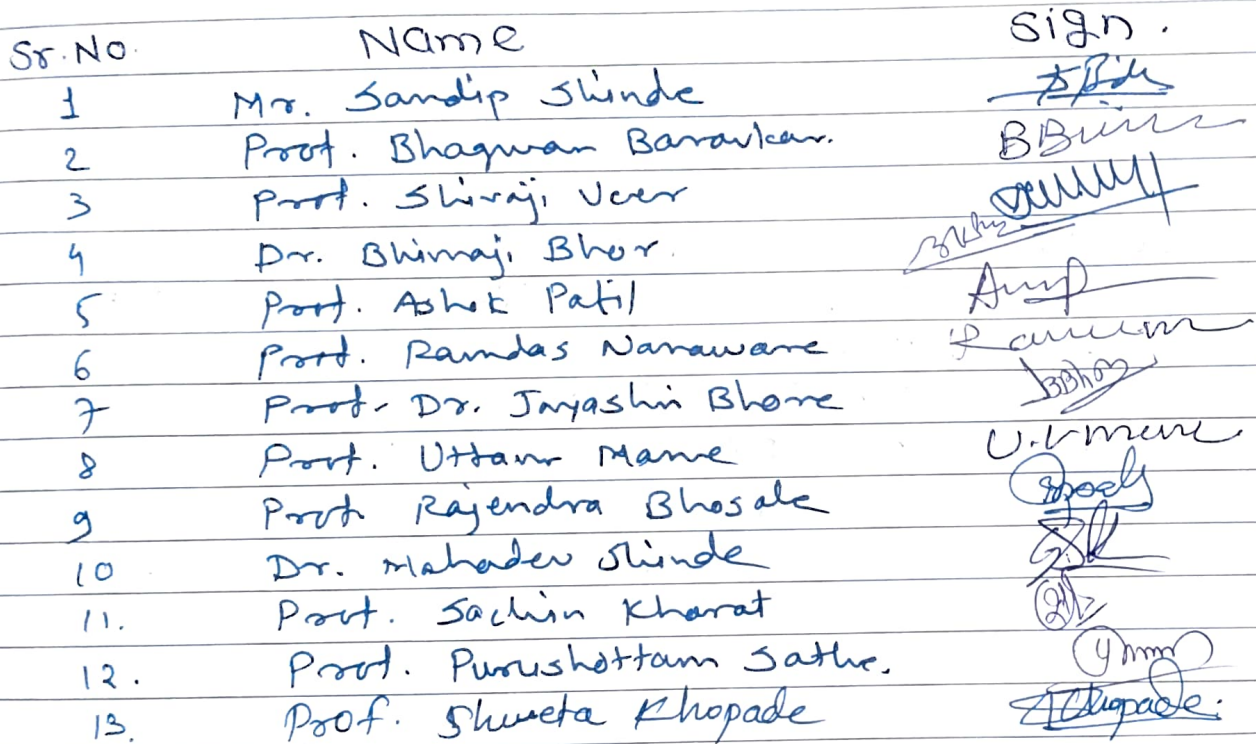 Sr. No. Name Sign.
1 Mr. Sandip Shinde
2 Prof. Bhagwan Baravkar.
3 Prof. Shivaji Veer
4 Dr. Bhimaji Bhor.
5 Prof. Ashok Patil
6 Prof. Ramdas Nanaware
7 Prof. Dr. Jayashri Bhore
8 Prof. Uttam Mane
9 Prof. Rajendra Bhosale
10 Dr. Mahadev Shinde
11. Prof. Sachin Kharat
12. Prof. Purushottam Sathe.
13. Prof. Shweta Khopade